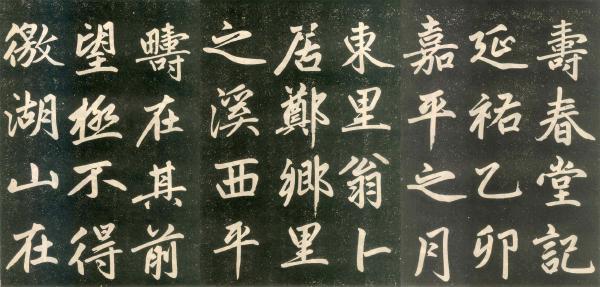 壽春堂記
延祐乙卯
嘉平之月
東里翁卜
居鄭鄉里
之溪西平
疇在其前
望極不得
徼湖山在